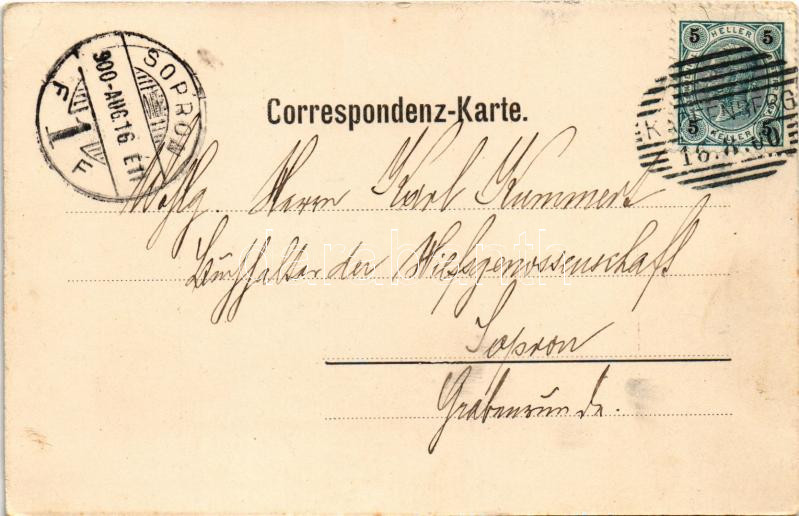 SOPRON
900-AUG.16. É11
F 1 F
5 HELLER 5
5 HELLER 5
KAHLENBERG
16.8.00
Correspondenz-Karte.
Wohlg. Herrn Karl Kummert
Buchhalter der
Sopron
Grabenrunde.
darabanth